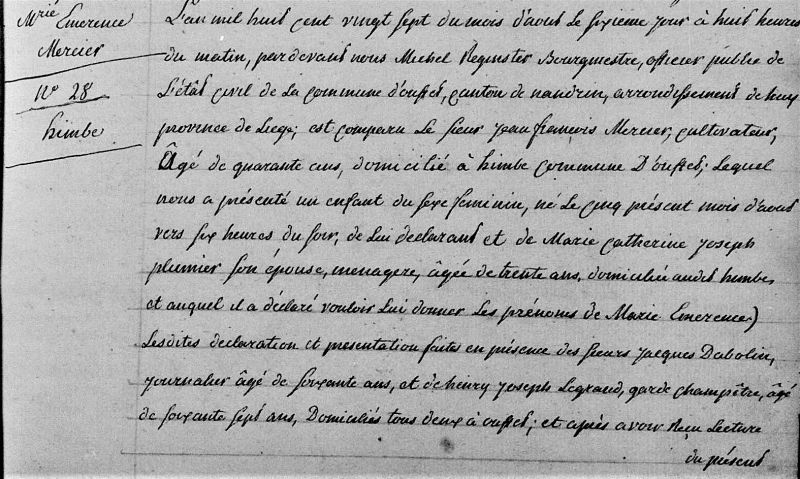 Mrie Emerence
Mercier
no 28
himbe
L'an mil huit cent vingt sept du mois d'aout le sixieme jour à huit heures
du matin, pardevant nous Michel Reginster Bourgmestre, officier public de
L'état civil de la commune d'ouffet, canton de nandrin, arrondissement de huy
province de Liege; est comparu le sieur jean françois Mercier, cultivateur,
Âgé de quarante ans, domicilié à himbe commune D'ouffet; lequel
nous a présenté un enfant du sexe feminin, né le cinq présent mois d'aout
vers six heures du soir, de lui declarant et de Marie catherine joseph
plumier son épouse, menagere, âgée de trente ans, domiciliée audit himbe,
et auquel il a déclaré vouloir lui donner les prénoms de Marie Emerence)
Lesdites declaration et presentation faites en présence des sieurs jacques Dabolin,
journalier âgé de soixante ans, et de henry joseph Legrand, garde champêtre, âgé
de soixante sept ans, Domiciliés tous deux à ouffet; et après avoir Recu Lecture
du présent